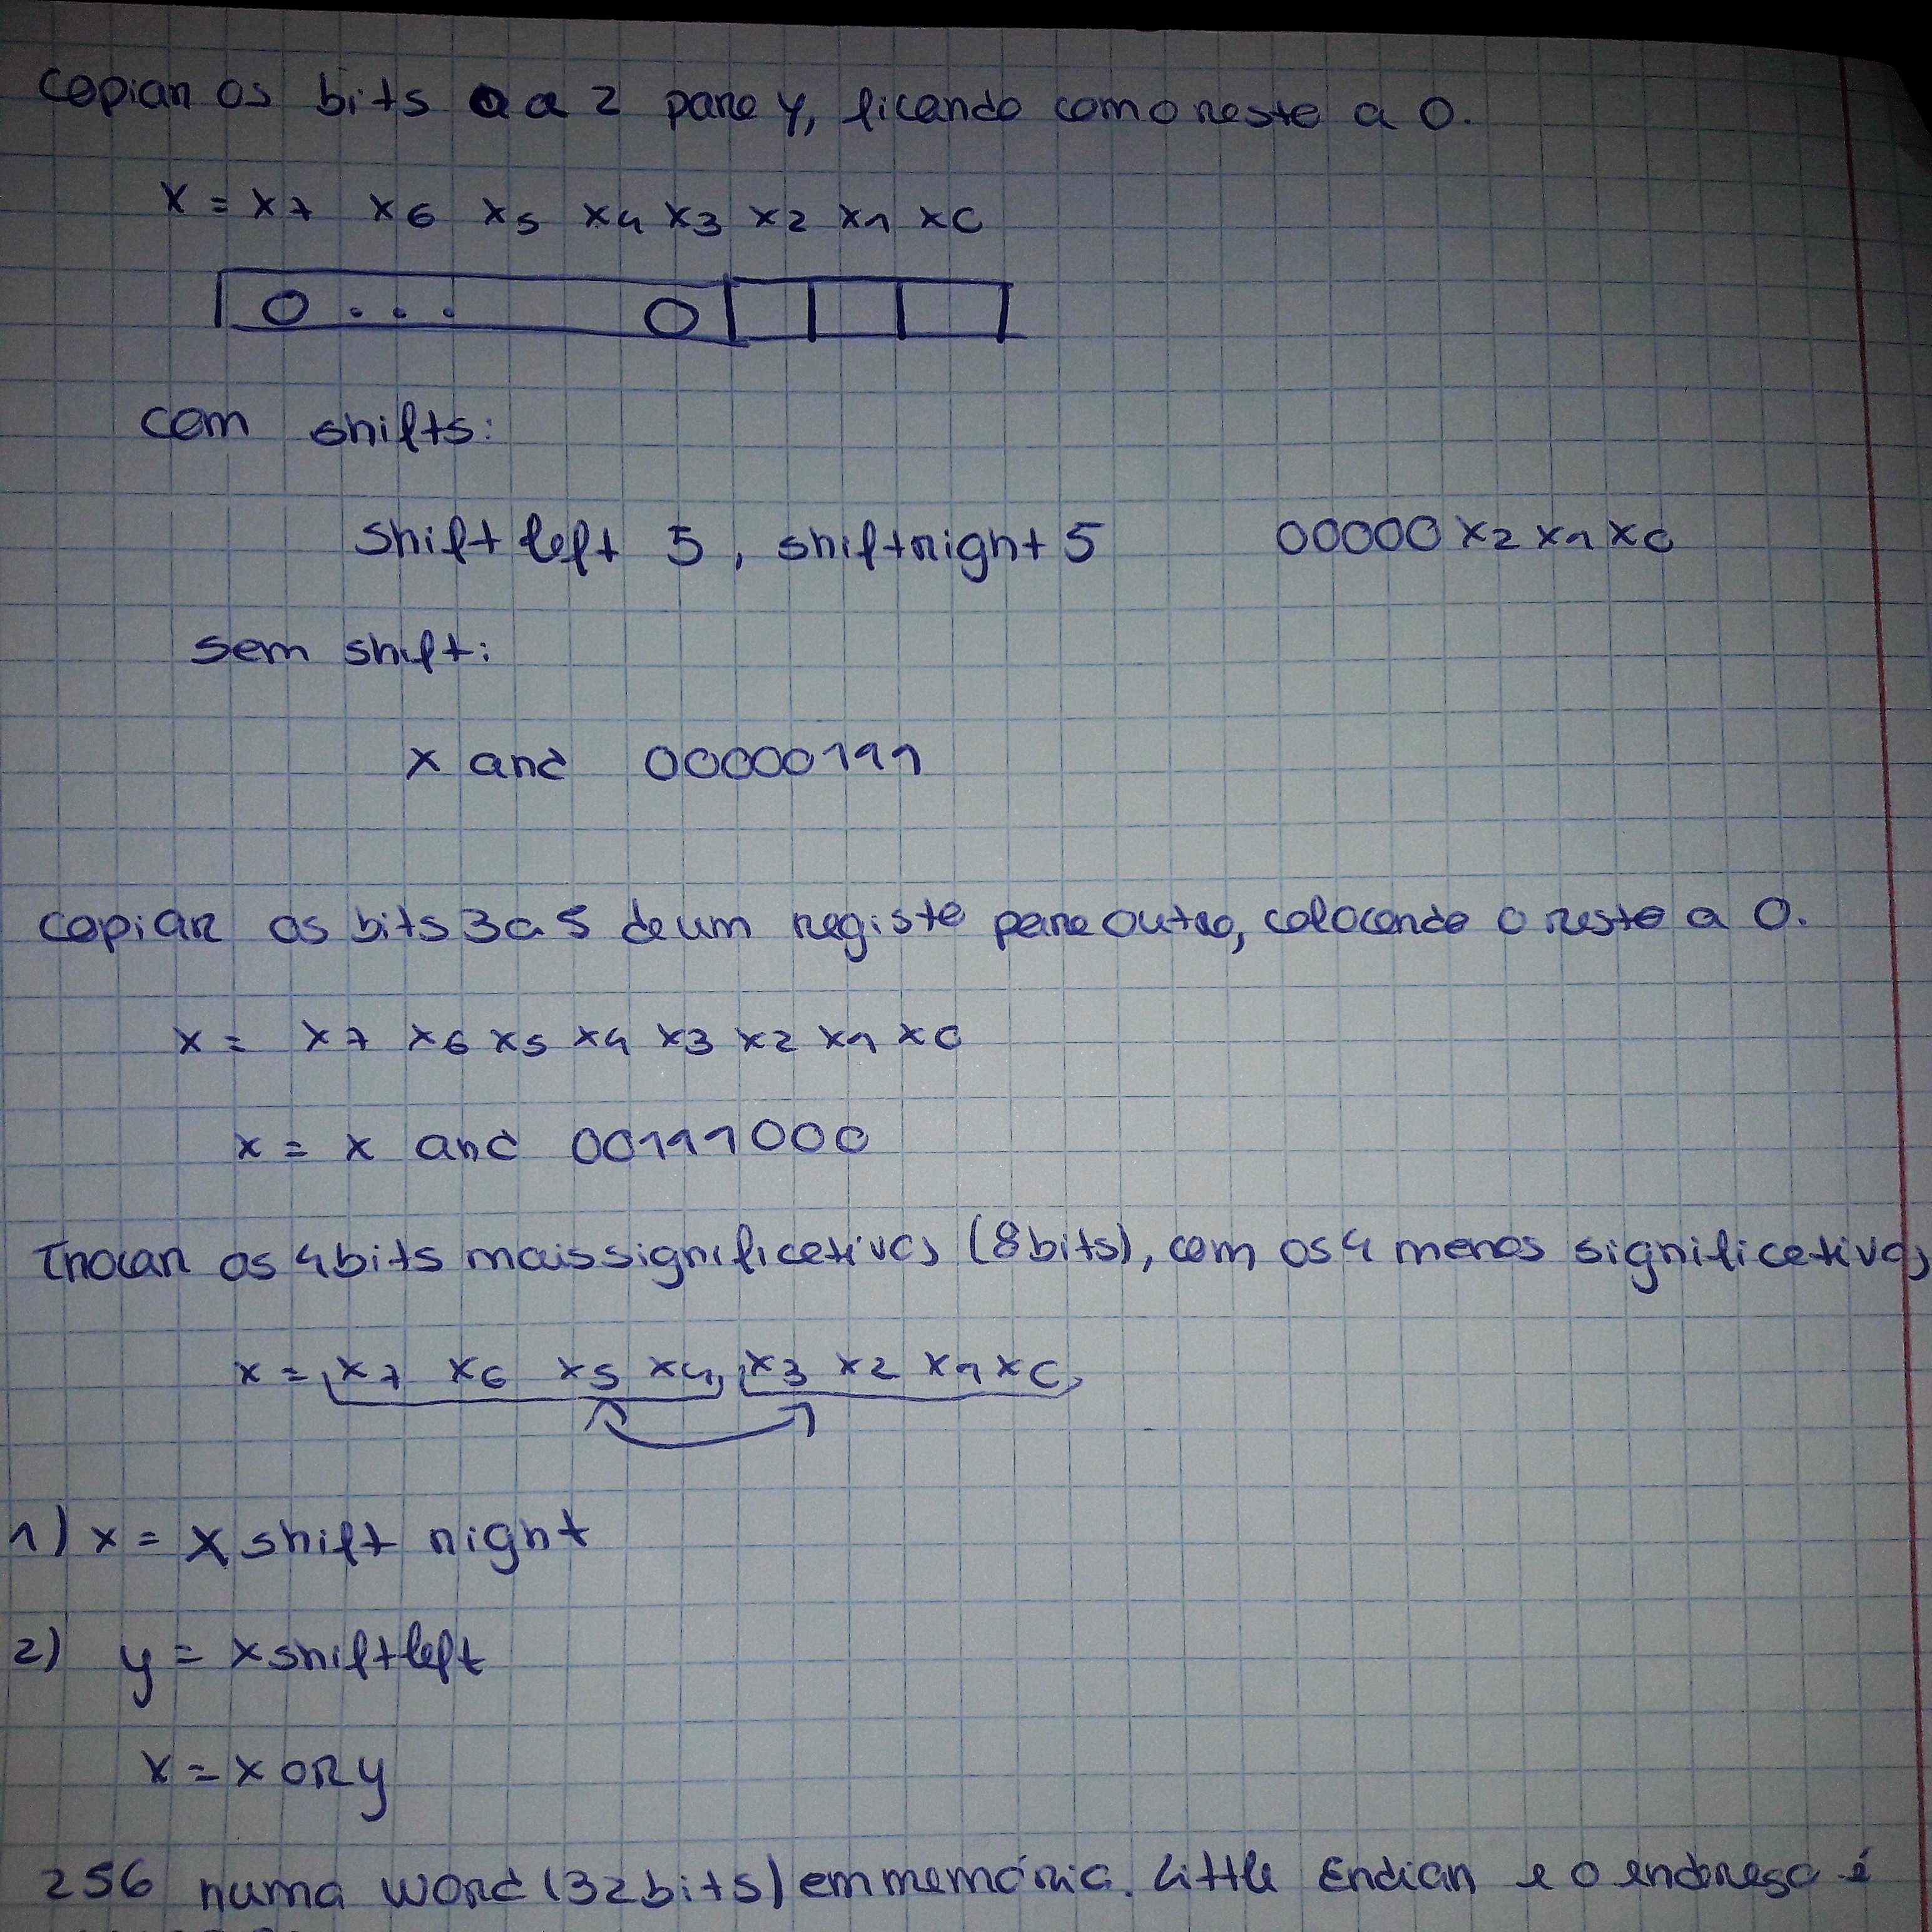 copiar os bits 0 a 2 para y, ficando como resto a 0.
x = x7 x6 x5 x4 x3 x2 x1 x0
0 . . . 0
com shifts:
shift left 5, shift right 5 00000 x2 x1 x0
sem shift:
x and 00000111
copiar os bits 3 a 5 de um registo para outro, colocando o resto a 0.
x = x7 x6 x5 x4 x3 x2 x1 x0
x = x and 00111000
Trocar os 4 bits mais significativos (8 bits), com os 4 menos significativos
x = x7 x6 x5 x4, x3 x2 x1 x0,
1) x = x shift right
2) y = x shift left
x = x or y
256 numa word (32 bits) em memória. Little Endian e o endereço é